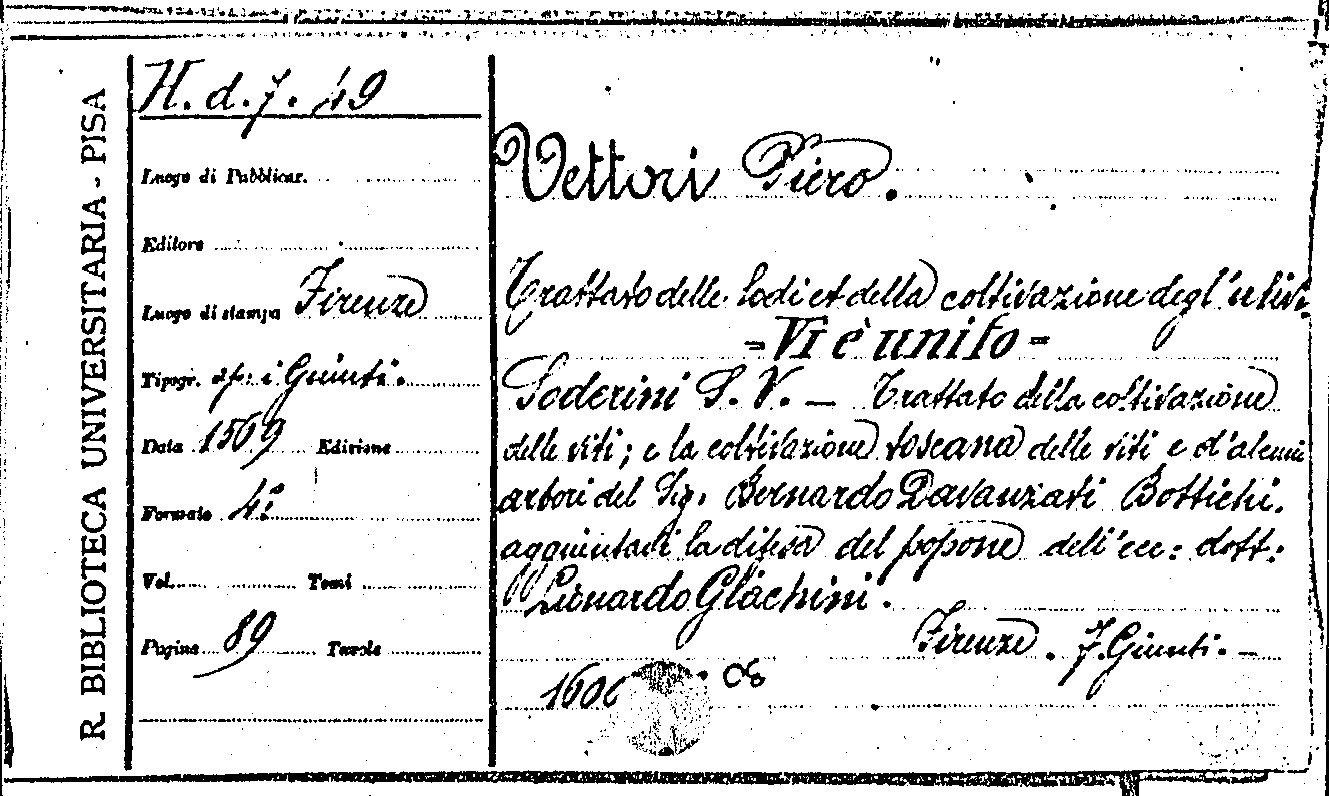 R. BIBLIOTECA UNIVERSITARIA - PISA
H. d. 7. 49
Luogo di Pubblicaz.
Editore
Luogo di stampa Firenze
Tipogr. i Giunti.
Data 1569 Edizione
Formato 4º
Vol. Tomi
Pagine 89 Tavole
Vettori Piero.
Trattato delle lodi et della coltivazione degl'ulivi.
- Vi è unito -
Soderini G. V. — Trattato della coltivazione
delle viti; e la coltivazione toscana delle viti e d'alcuni
arbori del Sig. Bernardo Davanzati Bostichi.
aggiuntavi la difesa del popone dell'ecc: dott:
Lionardo Giachini.
Firenze. F. Giunti. —